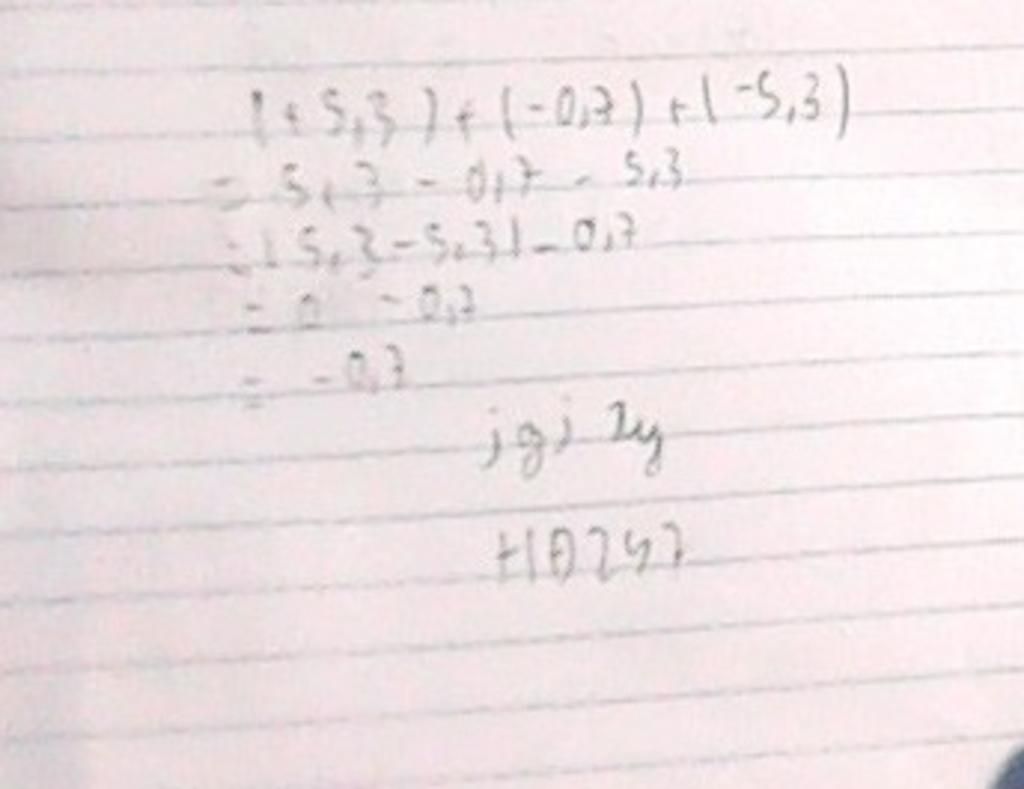 (+5,3)+(-0,7)+(-5,3)
= 5,3 - 0,7 - 5,3
=(5,3-5,3)-0,7
= 0 -0,7
= -0,7